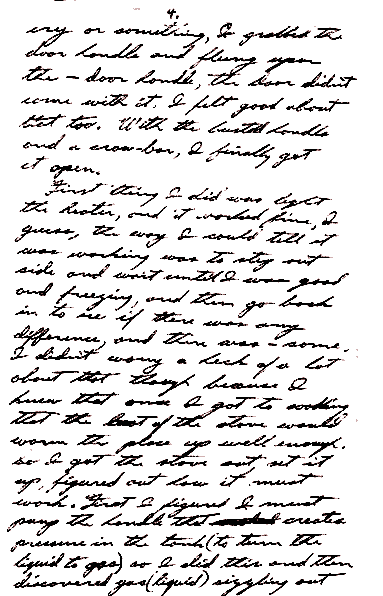 4.
cry or something, So grabbed the
door handle and flung open
the — door handle, the door didn't
come with it. I felt good about
that too. With the busted handle
and a crow-bar, I finally got
it open.
First thing I did was light
the heater, and it worked fine, I
guess, the way I could tell it
was working was to step out
side and wait until I was good
and freezing, and then go back
in to see if there was any
difference, and there was - some.
I didn't worry a heck of a lot
about that though because I
knew that once I got to cooking
that the heat of the stove would
warm the place up well enough.
so I got the stove out, set it
up, figured out how it must
work. First I figured I must
pump the handle that creates
pressure in the tank (to turn the
liquid to gas) so I did this and then
discovered gas (liquid) sizzling out